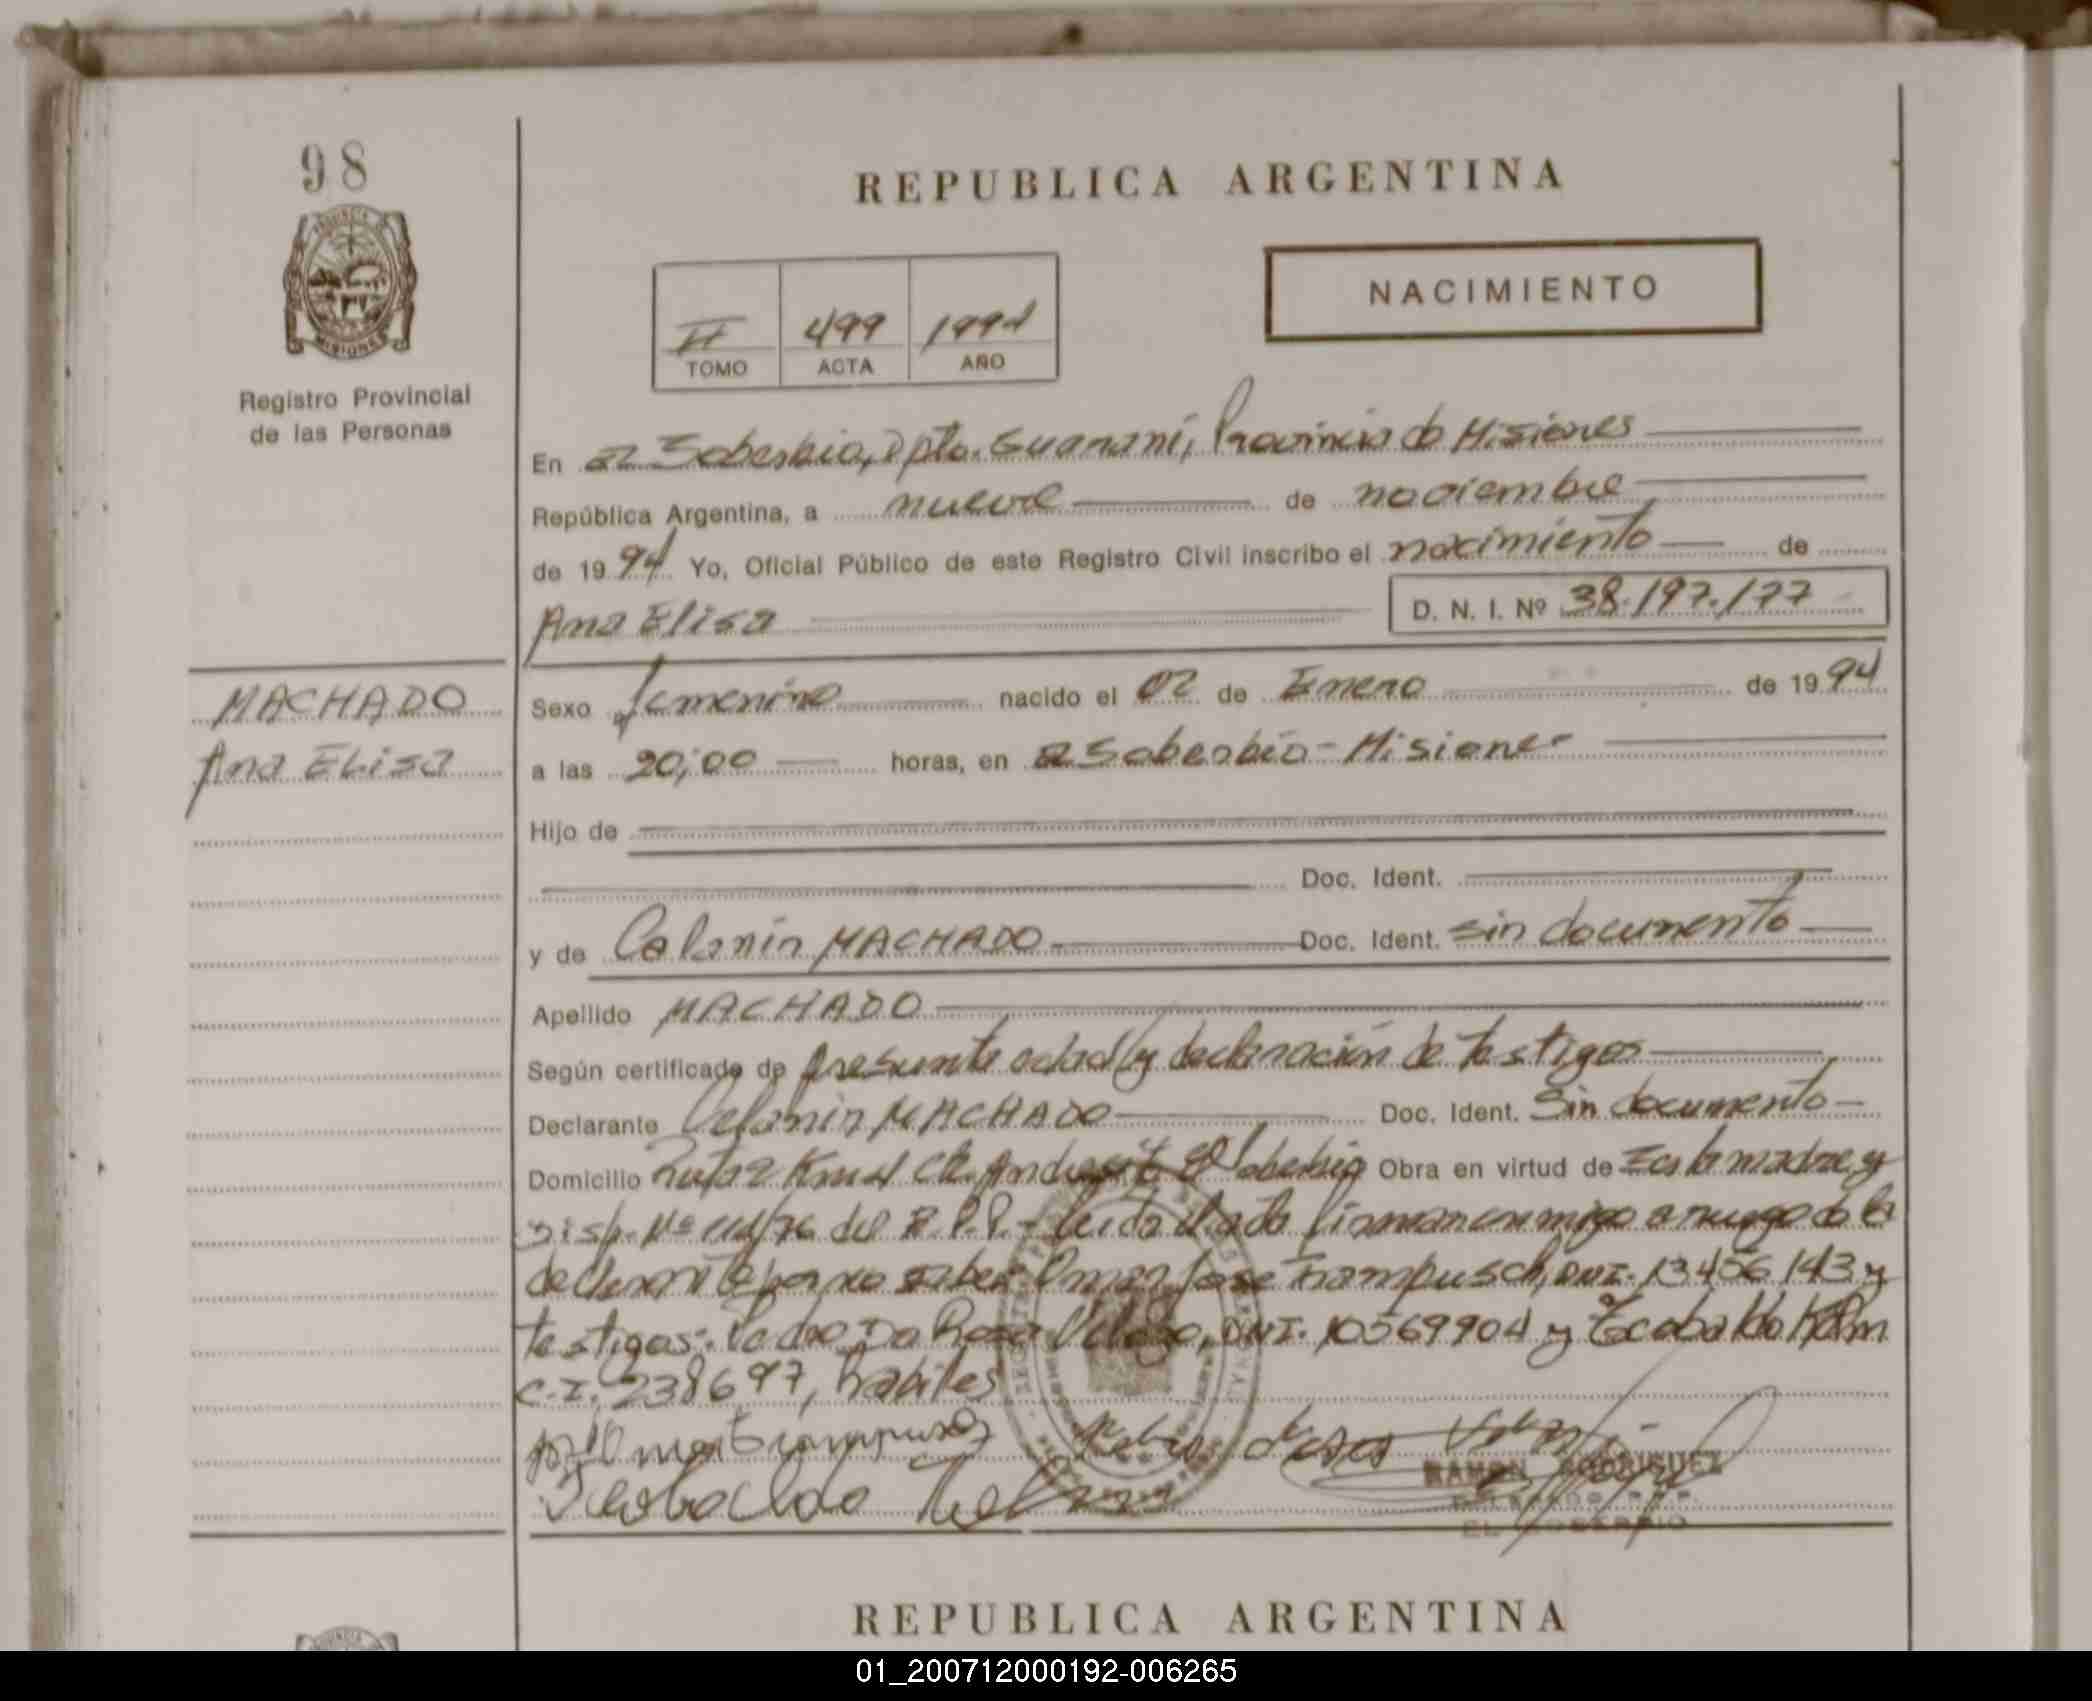 98
PROVINCIA
MISIONES
Registro Provincial
de las Personas
REPUBLICA ARGENTINA
NACIMIENTO
II 499 1994
TOMO ACTA AÑO
En El Soberbio, Dpto. Guaraní, Provincia de Misiones
República Argentina, a nueve de noviembre
de 1994 Yo, Oficial Público de este Registro Civil inscribo el nacimiento de
Ana Elisa D. N. I. Nº 38.197.177
MACHADO
Ana Elisa
Sexo femenino nacido el 02 de Enero de 1994
a las 20;00 horas, en El Soberbio - Misiones
Hijo de
Doc. Ident.
y de MACHADO Doc. Ident. sin documento
Apellido MACHADO
Según certificado de presunta edad y declaración de testigos
Declarante MACHADO Doc. Ident. Sin documento
Domicilio Ruta 2 El Soberbio Obra en virtud de Es la madre y
Disp. Nº del R.P.P. - Leída el acta firman conmigo a ruego de la
declarante por no saber Jose Trampusch, DNI. 13456143 y
testigos: Pedro Da Rosa DNI. 10569904 y
C.I. 238697, hábiles
RAMON RODRIGUEZ
EL SOBERBIO
REPUBLICA ARGENTINA
01_200712000192-006265